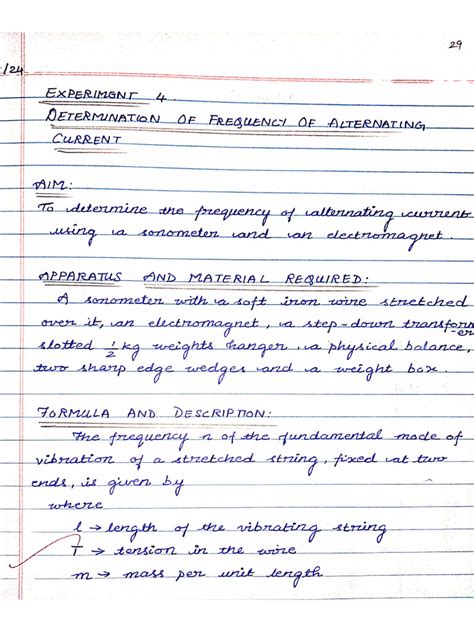 29
/24
EXPERIMENT 4.
DETERMINATION OF FREQUENCY OF ALTERNATING
CURRENT
AIM:
To determine the frequency of alternating current
using a sonometer and an electromagnet.
APPARATUS AND MATERIAL REQUIRED:
A sonometer with a soft iron wire stretched
over it, an electromagnet, a step-down transform-er
slotted 1/2 kg weights hanger, a physical balance,
two sharp edge wedges and a weight box.
FORMULA AND DESCRIPTION:
The frequency n of the fundamental mode of
vibration of a stretched string, fixed at two
ends, is given by
where
l → length of the vibrating string
T → tension in the wire
m → mass per unit length